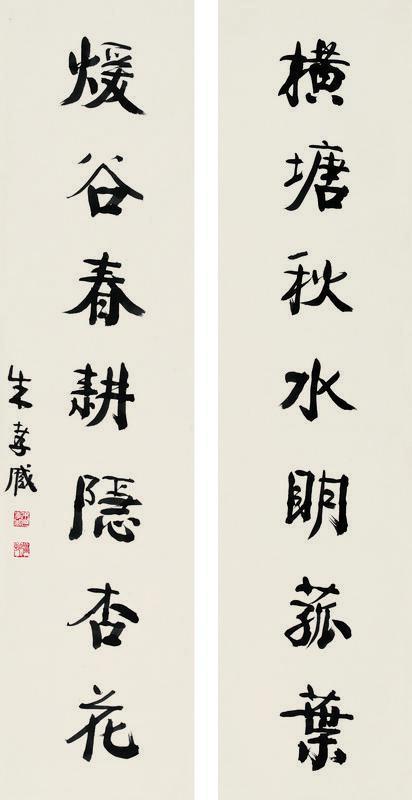 橫塘秋水明菰葉
煖谷春耕隱杏花
朱孝臧